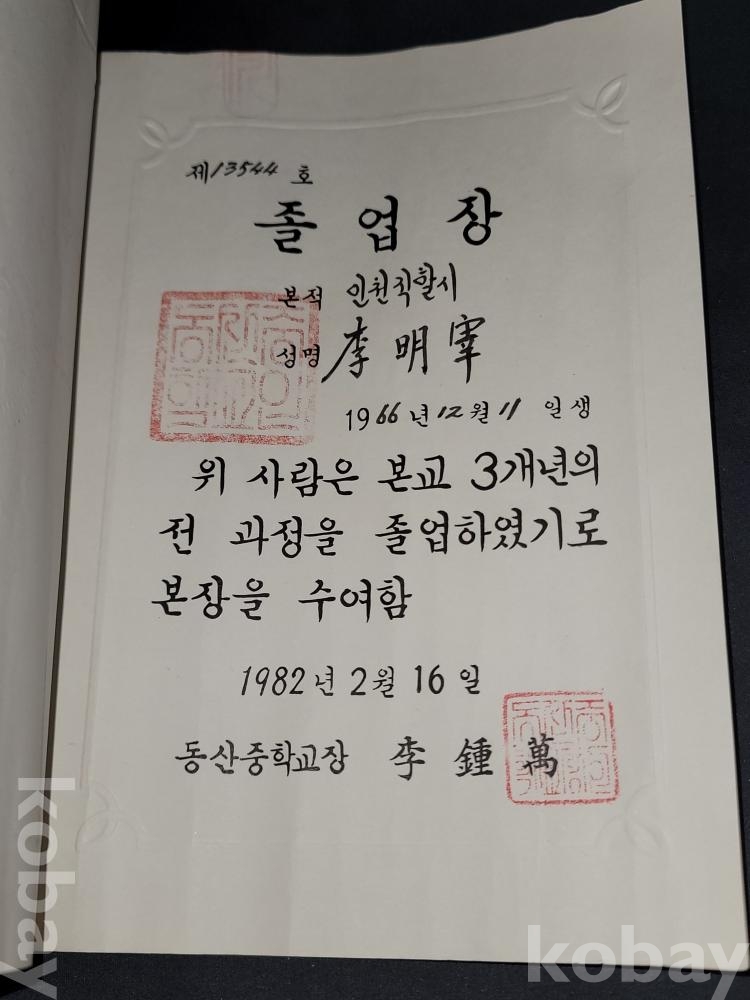 제13544 호
졸업장
본적 인천직할시
성명 李明宰
1966년 12월 11일생
위 사람은 본교 3개년의
전 과정을 졸업하였기로
본장을 수여함
1982년 2월 16일
동산중학교장 李鍾萬
kobay
kobay